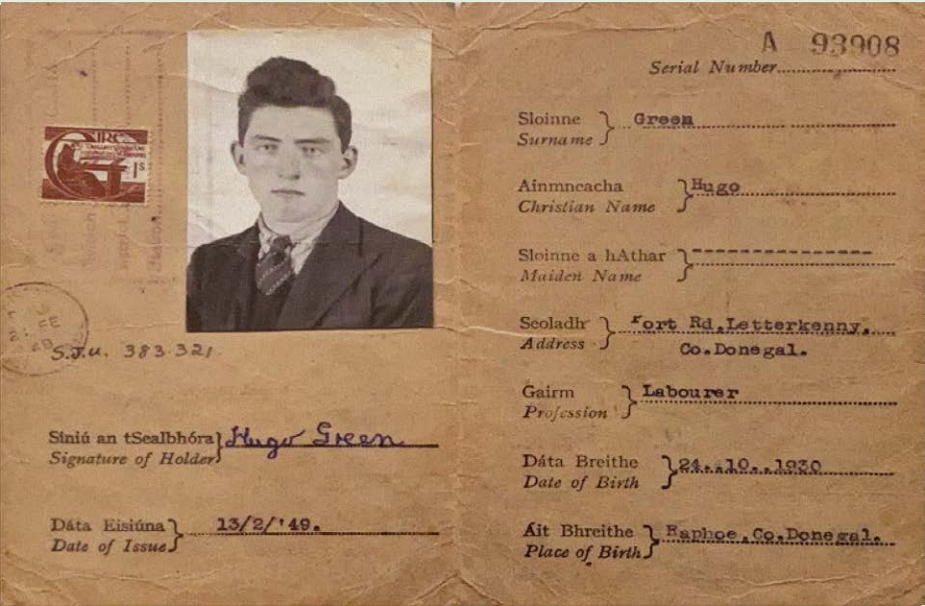 1s
S.J.U. 383.321.
Siniú an tSealbhóra
Signature of Holder
Hugo Green
Dáta Eisiúna
Date of Issue
13/2/'49.
A 93908
Serial Number
Sloinne
Surname
Green
Ainmneacha
Christian Name
Hugo
Sloinne a hAthar
Maiden Name
Seoladh
Address
Port Rd.Letterkenny.
Co.Donegal.
Gairm
Profession
Labourer
Dáta Breithe
Date of Birth
24..10..1930
Áit Bhreithe
Place of Birth
Raphoe.Co.Donegal.